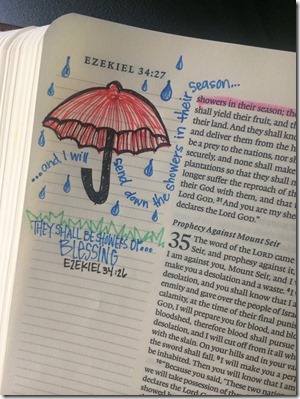 EZEKIEL 34:27
...and I will send down the showers in their season...
THEY SHALL BE SHOWERS OF...
BLESSING
EZEKIEL 34:26
showers in their season;
shall yield their fruit, and
their land. And they shall
and deliver them from the
be a prey to the nations, nor
securely, and none shall make
plantations so that they shall
longer suffer the reproach of
their God with them, and that
Lord GOD. 31 And you are my
declares the Lord GOD."
Prophecy Against Mount Seir
35 The word of the LORD came
Seir, and prophesy against it,
I am against you, Mount Seir, and I
make you a desolation and a waste.
desolation, and you shall know that I a
enmity and gave over the people of
calamity, at the time of their final
God, I will prepare you for blood, and
bloodshed, therefore blood shall pursue
desolation, and I will cut off from it all
with the slain. On your hills and in your
the sword shall fall. 9 I will make you a
be inhabited. Then you will know that I am
10 "Because you said, 'These two
we will take possession of
declares the Lord